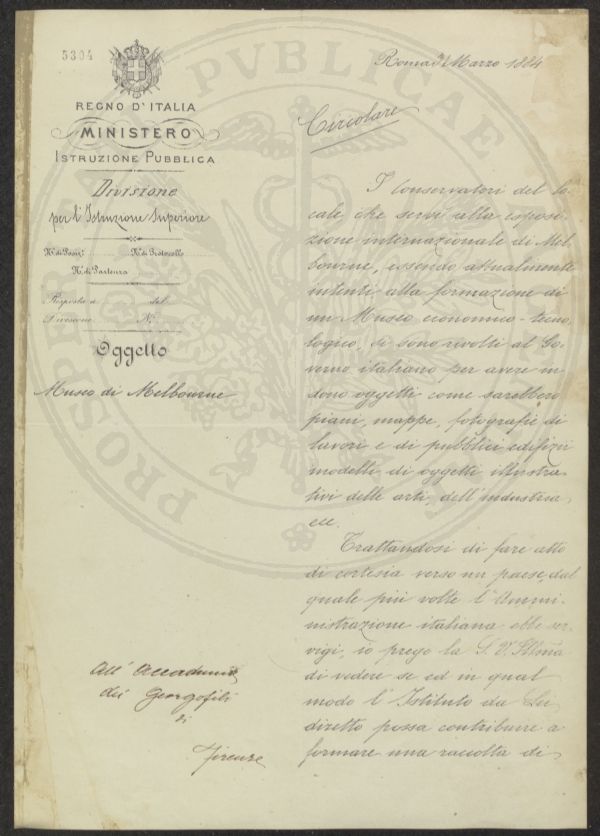 5304
REGNO D'ITALIA
MINISTERO
ISTRUZIONE PUBBLICA
Divisione
per l'Istruzione Superiore
N.º di Posiz.º N.º di Protocollo
N.º di Partenza
Risposta a del
Divisione N.º
Oggetto
Museo di Melbourne
All' Accademia
dei Georgofili
di
Firenze
Roma Marzo 1884
Circolare
I Conservatori del lo-
cale, che servì alla esposi-
zione internazionale di Mel-
bourne, essendo attualmente
intenti alla formazione di
un Museo economico-tecno-
logico, si sono rivolti al Go-
verno italiano per avere in
dono oggetti come sarebbero
piani, mappe, fotografie di
lavori e di pubblici edifizii
modelli di oggetti illustra-
tivi delle arti, dell'industria,
ecc.
Trattandosi di fare atto
di cortesia verso un paese, dal
quale più volte l'Ammi-
nistrazione italiana ebbe ser-
vigi, io prego la S. V. Illma
di vedere se ed in qual
modo l'Istituto da Lei
diretto possa contribuire a
formare una raccolta di
PROSPERITATI PUBLICAE